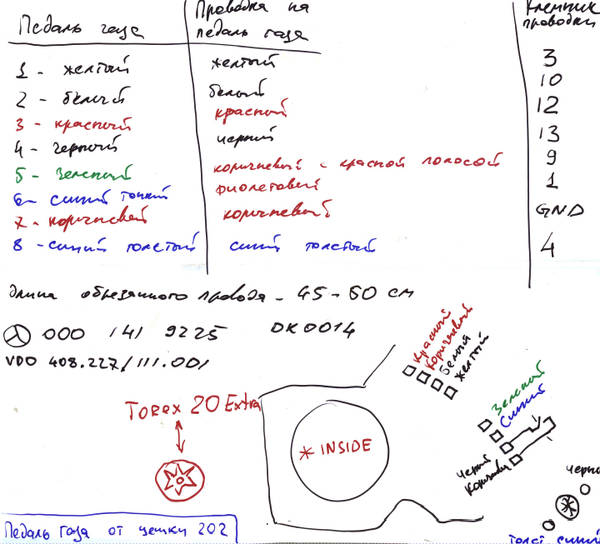 Педаль газа
Проводка на педаль газа
Клеммник проводки
1 - желтый желтый 3
2 - белый белый 10
3 - красный красный 12
4 - черный черний 13
5 - зеленый коричневый с красной полосой 9
6 - синий тонкий фиолетовый 1
7 - коричневый коричневый GND
8 - синий толстый синий толстый 4
Длина обрезанного провода - 45-60 см
000 141 9225 DK0014
VDO 408.227/111.001
Красный
Коричневый
Белый
Желтый
Зеленый
Синий
Torex 20 Extra
* INSIDE
Черный
Коричневый
Педаль газа от цешки 202